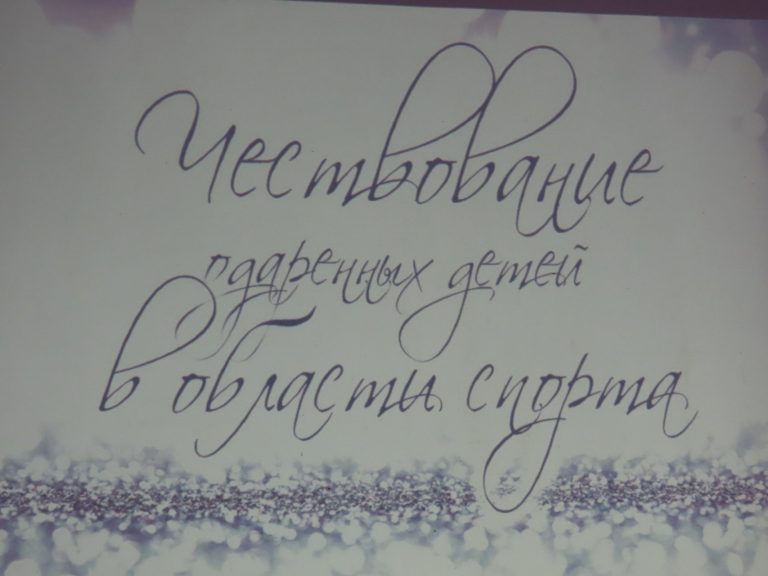 Чествование
одаренных детей
в области спорта